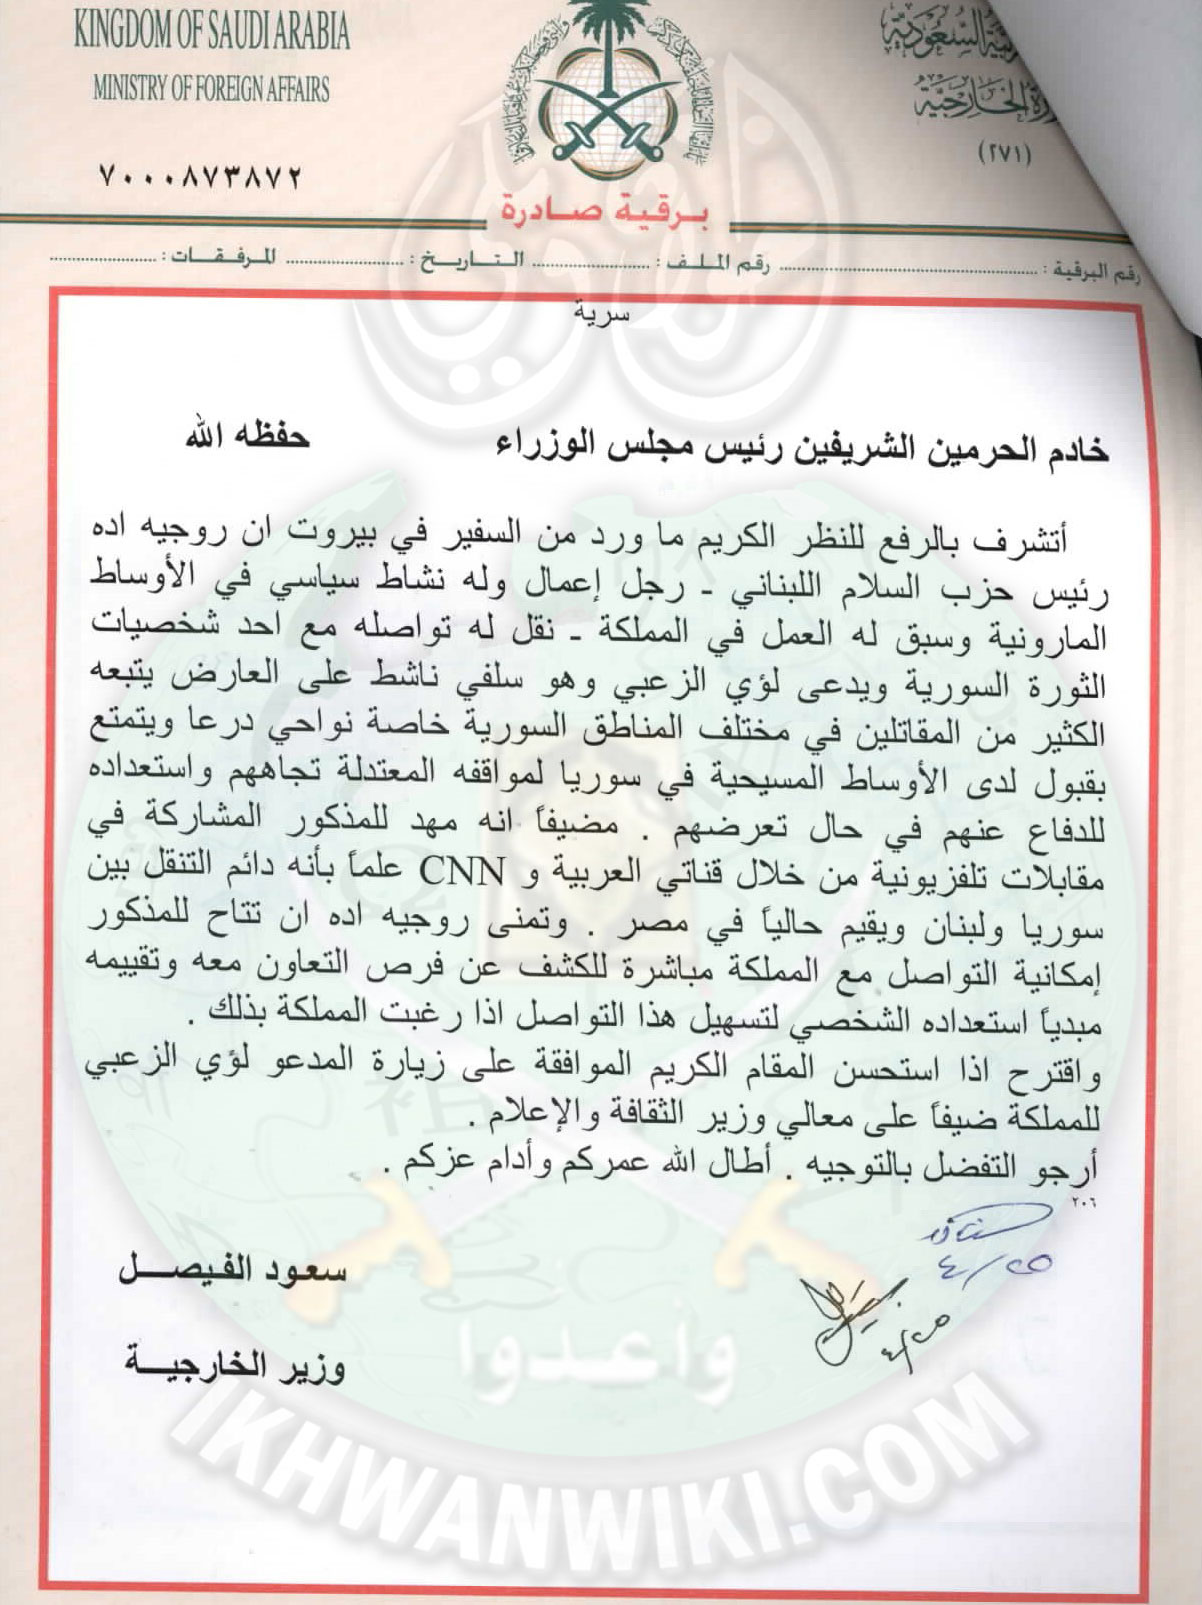 KINGDOM OF SAUDI ARABIA
MINISTRY OF FOREIGN AFFAIRS
السعودية
الخارجية
(٢٧١)
٧٠٠٠٨٧٣٨٧٢
برقية صادرة
رقم البرقية : رقم الملف : التاريخ : المرفقات :
سرية
خادم الحرمين الشريفين رئيس مجلس الوزراء حفظه الله
أتشرف بالرفع للنظر الكريم ما ورد من السفير في بيروت ان روجيه اده
رئيس حزب السلام اللبناني - رجل إعمال وله نشاط سياسي في الأوساط
المارونية وسبق له العمل في المملكة - نقل له تواصله مع احد شخصيات
الثورة السورية ويدعى لؤي الزعبي وهو سلفي ناشط على العارض يتبعه
الكثير من المقاتلين في مختلف المناطق السورية خاصة نواحي درعا ويتمتع
بقبول لدى الأوساط المسيحية في سوريا لمواقفه المعتدلة تجاههم واستعداده
للدفاع عنهم في حال تعرضهم . مضيفاً انه مهد للمذكور المشاركة في
مقابلات تلفزيونية من خلال قناتي العربية و CNN علماً بأنه دائم التنقل بين
سوريا ولبنان ويقيم حالياً في مصر . وتمنى روجيه اده ان تتاح للمذكور
إمكانية التواصل مع المملكة مباشرة للكشف عن فرص التعاون معه وتقييمه
مبدياً استعداده الشخصي لتسهيل هذا التواصل اذا رغبت المملكة بذلك .
واقترح اذا استحسن المقام الكريم الموافقة على زيارة المدعو لؤي الزعبي
للمملكة ضيفاً على معالي وزير الثقافة والإعلام .
أرجو التفضل بالتوجيه . أطال الله عمركم وأدام عزكم .
٢٠٦
٤/٢٥
٤/٢٥
سعود الفيصل
وزير الخارجية
وأعدوا
IKHWANWIKI.COM